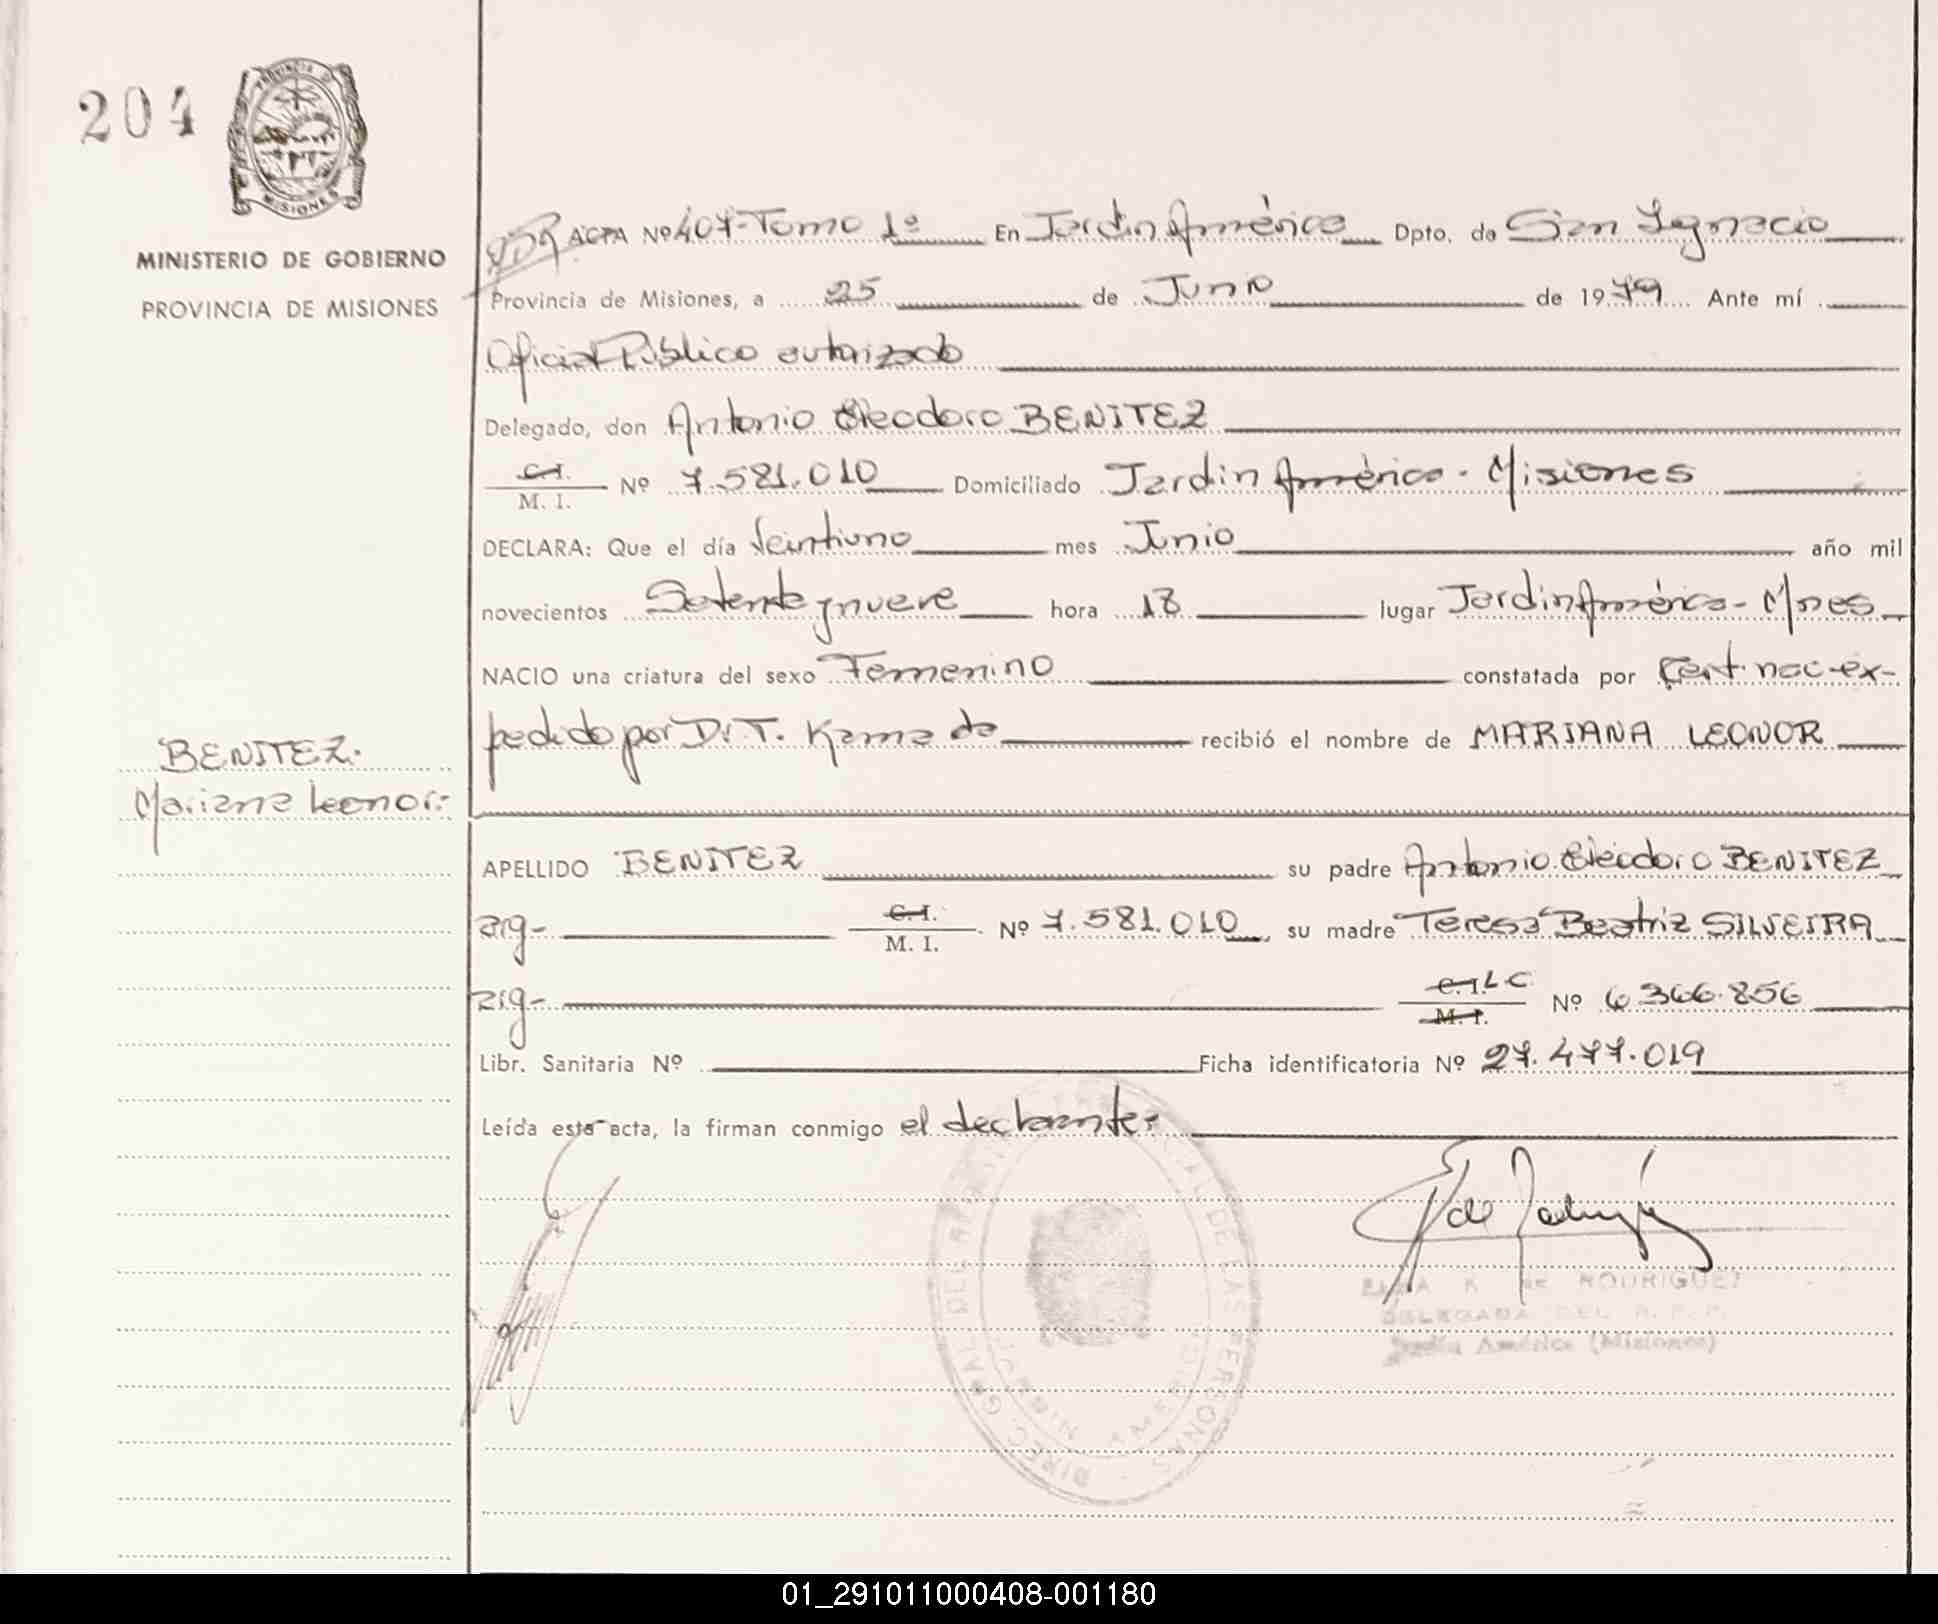 204
PROVINCIA DE
MISIONES
MINISTERIO DE GOBIERNO
PROVINCIA DE MISIONES
ACTA Nº 407-Tomo 1º En Jardin América Dpto. de San Ignacio
Provincia de Misiones, a 25 de Junio de 1979 Ante mí
Oficial Público autorizado
Delegado, don Antonio Eleodoro BENITEZ
C.I.
M. I. Nº 7.581.010 Domiciliado Jardin América - Misiones
DECLARA: Que el día Veintiuno mes Junio año mil
novecientos Setenta y nueve hora 18 lugar Jardin América - Mnes
NACIO una criatura del sexo Femenino constatada por Cert. nac. ex-
pedido por Dr. T. Kamada recibió el nombre de MARIANA LEONOR
BENITEZ.
Mariana Leonor.-
APELLIDO BENITEZ su padre Antonio Eleodoro BENITEZ
arg- C.I. M. I. Nº 7.581.010, su madre Teresa Beatriz SILVEIRA
arg- C.I. LC M. I. Nº 6.366.856
Libr. Sanitaria Nº Ficha identificatoria Nº 27.477.019
Leída esta acta, la firman conmigo el declarante:
DE RODRIGUEZ
DELEGADA DEL R. P. P.
Jardín América (Misiones)
DIREC. GRAL DEL DE LAS PERSONAS
JARDIN AMERICA
01_291011000408-001180